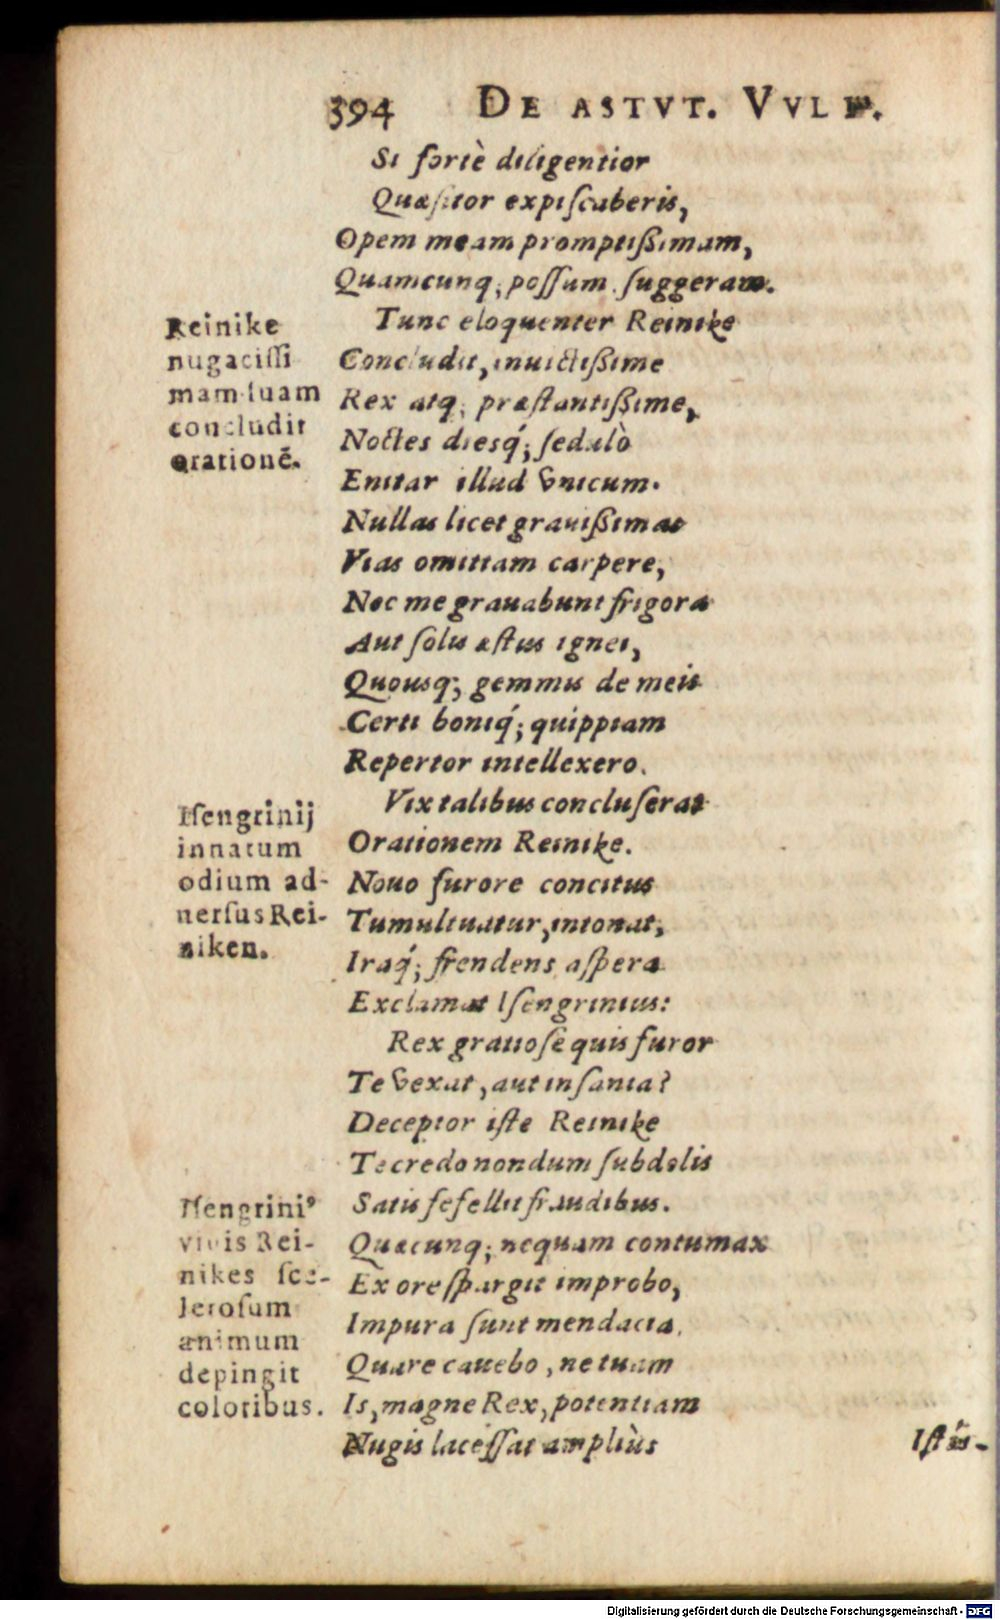 394 DE ASTVT. VVLP.
Si fortè diligentior
Quæſitor expiſcaberis,
Opem meam promptißimam,
Quamcunq; poſſum ſuggeram.
Tunc eloquenter Reinike
Concludit, inuictißime
Rex atq; præſtantißime,
Noctes diesq́; ſedulò
Enitar illud vnicum.
Nullas licet grauißimas
Vias omittam carpere,
Nec me grauabunt frigora
Aut ſolis æſtus ignei,
Quousq; gemmis de meis
Certi boniq́; quippiam
Repertor intellexero.
Vix talibus concluſerat
Orationem Reinike.
Nouo furore concitus
Tumultuatur, intonat,
Iraq́; frendens aſpera
Exclamat Iſengrinius:
Rex gratioſe quis furor
Te vexat, aut inſania?
Deceptor iſte Reinike
Te credo nondum ſubdolis
Satis fefellit fraudibus.
Quæcunq; nequam contumax
Ex ore ſpargit improbo,
Impura ſunt mendacia.
Quare cauebo, ne tuam
Is, magne Rex, potentiam
Nugis laceſſat ampliùs
Reinike
nugaciſſi
mam ſuam
concludit
orationē.
Iſengrinij
innatum
odium ad-
uerſus Rei-
niken.
Iſengriniꝰ
vivis Rei-
nikes ſce-
leroſum
animum
depingit
coloribus.
Digitalisierung gefördert durch die Deutsche Forschungsgemeinschaft - DFG